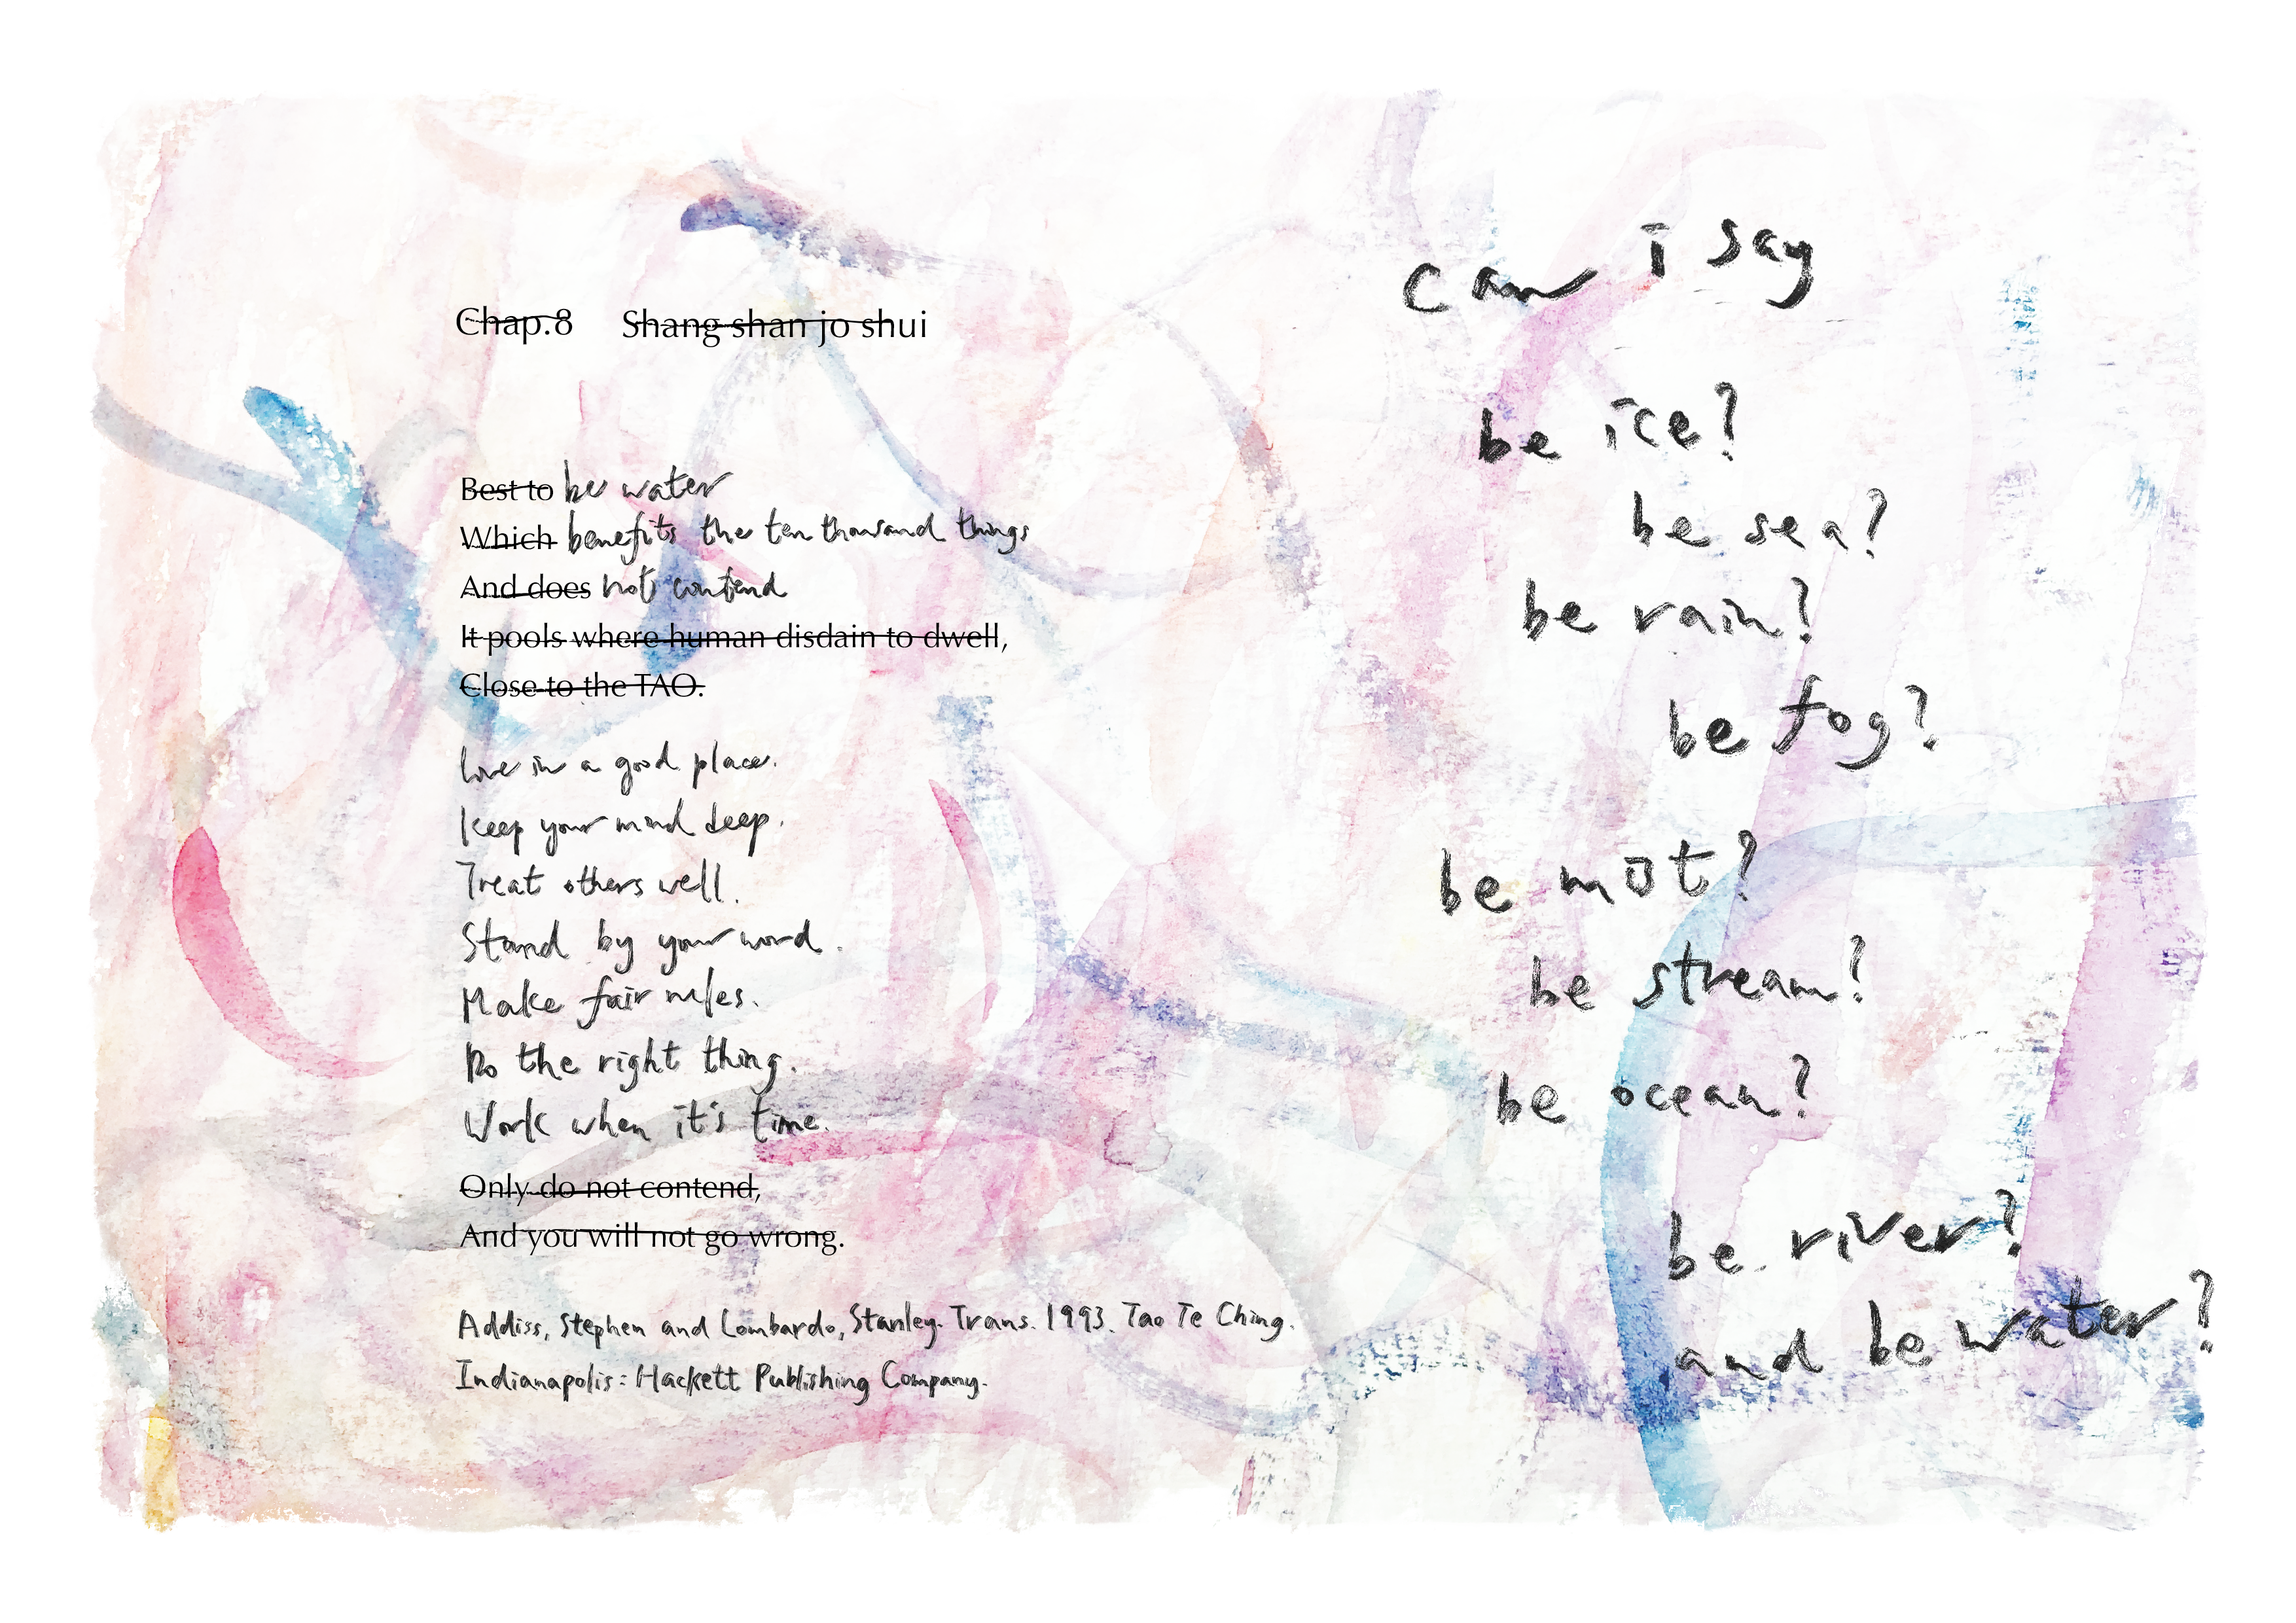 Chap.8 Shang shan jo shui
Best to be water
Which benefits the ten thousand things
And does not contend
It pools where human disdain to dwell,
Close to the TAO.
Live in a good place.
Keep your mind deep.
Treat others well.
Stand by your word.
Make fair rules.
Do the right thing.
Work when it's time.
Only do not contend,
And you will not go wrong.
Addiss, Stephen and Lombardo, Stanley. Trans. 1993. Tao Te Ching.
Indianapolis: Hackett Publishing Company.
can i say
be ice?
be sea?
be rain?
be fog?
be mist?
be stream?
be ocean?
be river?
and be water?